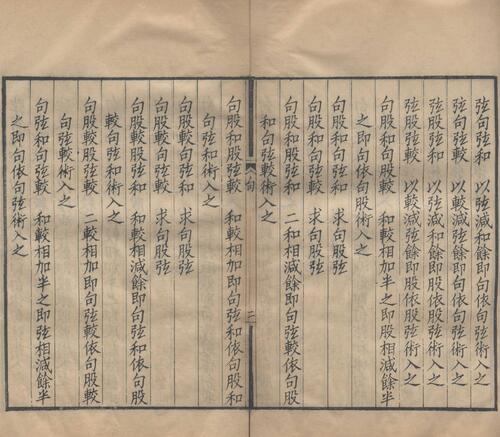 弦句弦和 以弦減和餘即句依句弦術入之
弦句弦較 以較減弦餘即句依句弦術入之
弦股弦和 以弦減和餘即股依股弦術入之
弦股弦較 以較減弦餘即股依股弦術入之
句股和句股較 和較相加半之即股相減餘半
之即句依句股術入之
句股和股弦和 求句股弦
句股和股弦較 求句股弦
句股和股弦和 二和相減餘即句弦較依句股
和句弦較術入之
句股和股弦較 和較相加即句弦和依句股和
句弦和術入之
句股較句弦較 求句股弦
句股較句弦和 求句股弦
句股較股弦和 和較相減餘即句弦和依句股
較句弦和術入之
句股較股弦較 二較相加即句弦較依句股較
句弦較術入之
句弦和句弦較 和較相加半之即弦相減餘半
之即句依句弦術入之
句 二